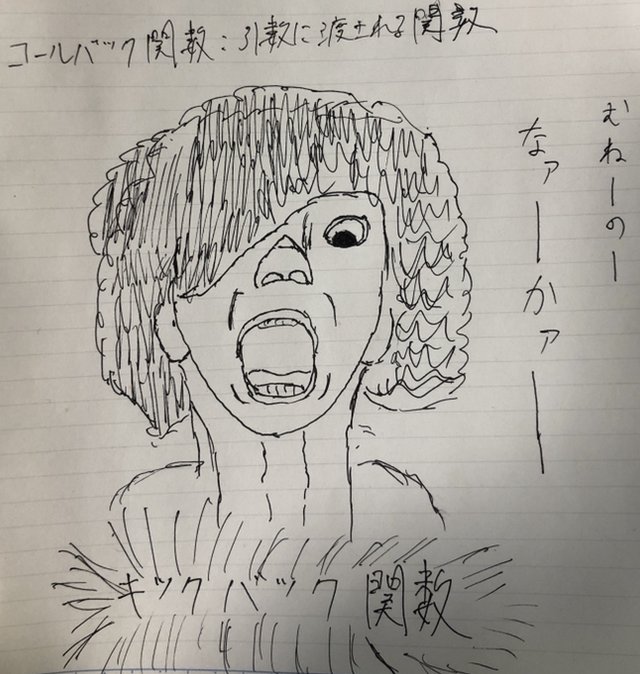 コールバック関数：引数に渡される関数
むねーのー
なァーかァー
キックバック関数